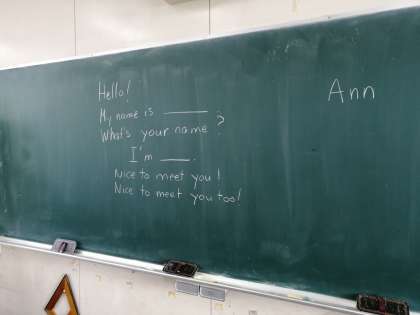 Hello!
My name is ______.
What's your name?
I'm ____.
Nice to meet you!
Nice to meet you too!
Ann